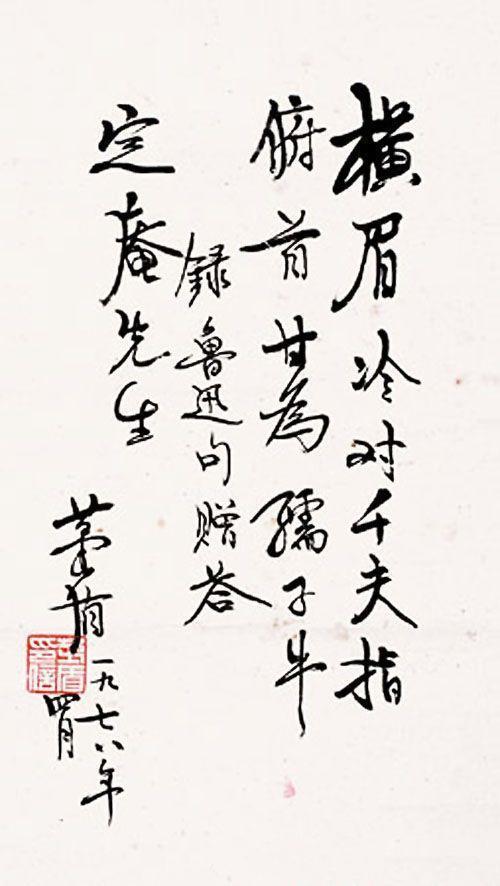 横眉冷对千夫指
俯首甘為孺子牛
録魯迅句赠答
定庵先生
茅盾一九七八年
四月
茅盾印信